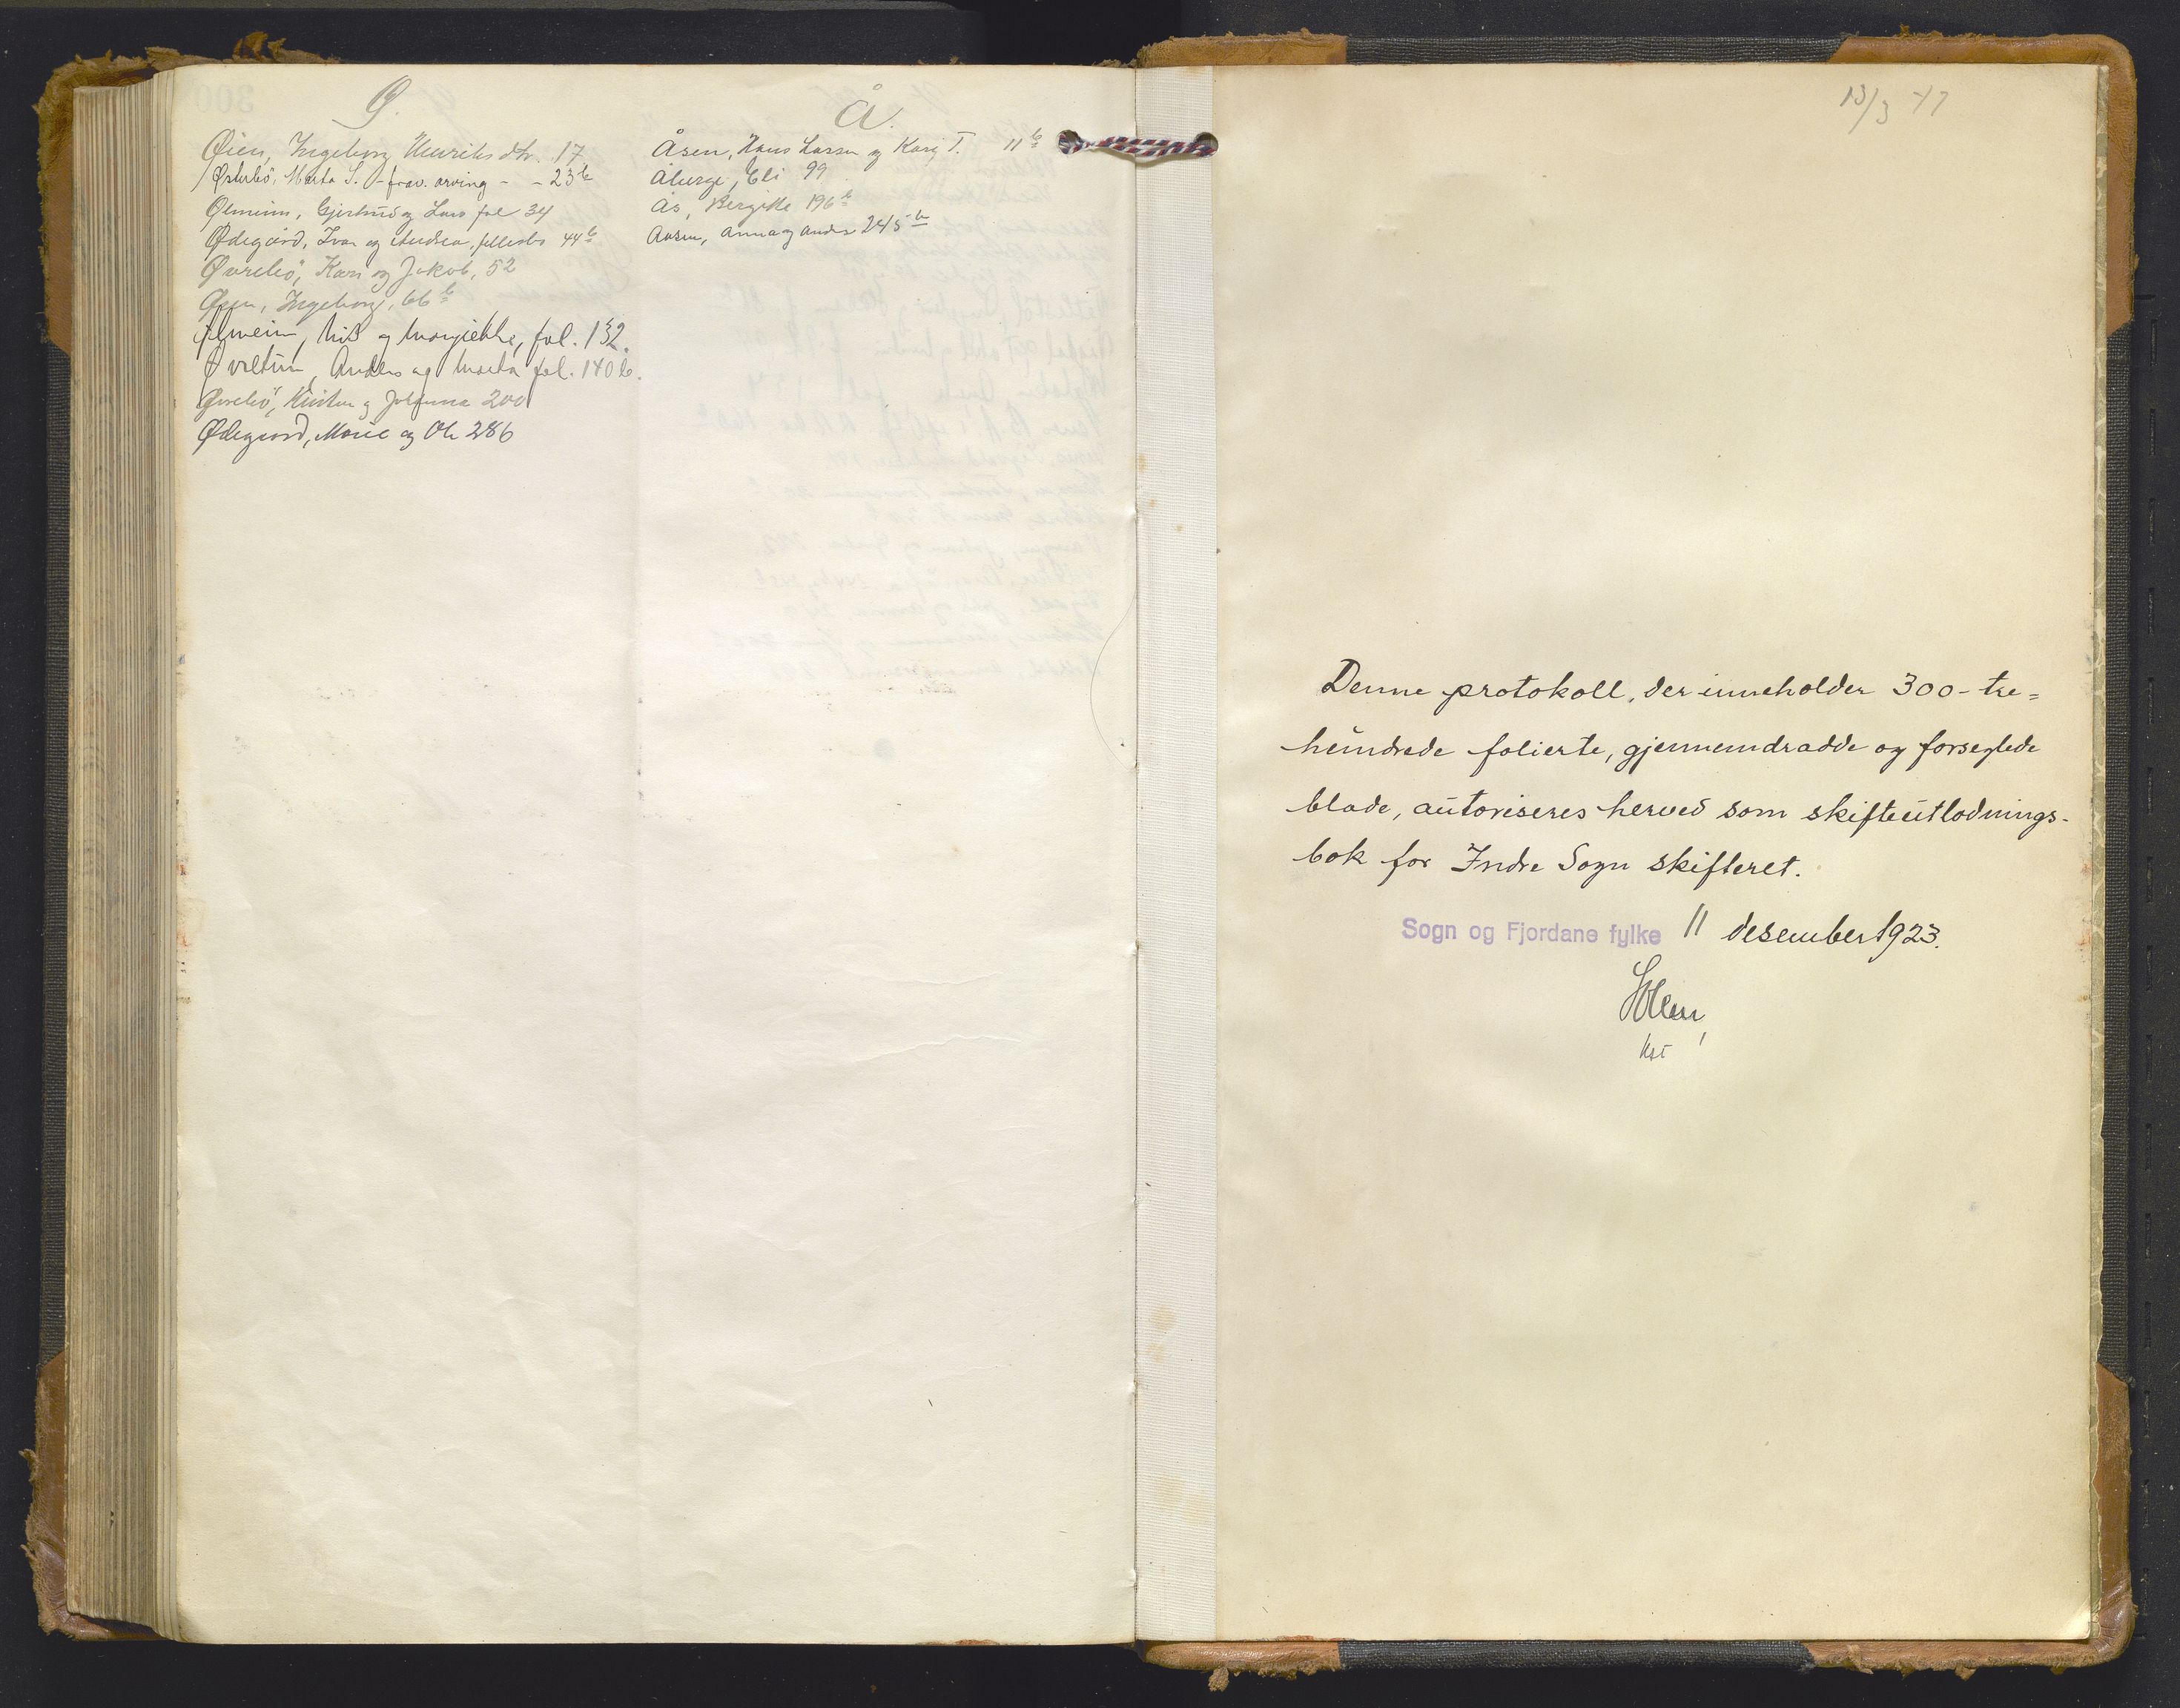 Ø.
Øien, Ingeborg Henriksdtr. 17
Østerbö, Marta S. - frav. arving - - 23b
Ølmeim, Gjertrud og Lars fol 34
Ødegård, Ivar og Andrea, fellesbo 44b
Øvrebö, Kari og Jakob, 52
Øyen, Ingeborg, 66b
Ølmeim, Nils og fol. 132.
Øvretun, Anders og Marta fol. 140b.
Øvrebö, og Johanna 200
Ødegaard, Marie og Ole 286
Å.
Åsen, Hans Larsen og Kari T. 11b
Åberge, Eli 99
Ås, Bergitte 196b
Aasen, Anna og Anders 245b
13/3 47
Denne protokoll, der inneholder 300 - tre=
hundrede folierte, gjennemdradde og forseglede
blade, autoriseres herved som skifteutlodnings-
bok for Indre Sogn skifteret.
Sogn og Fjordane fylke 11 desember 1923.
kst